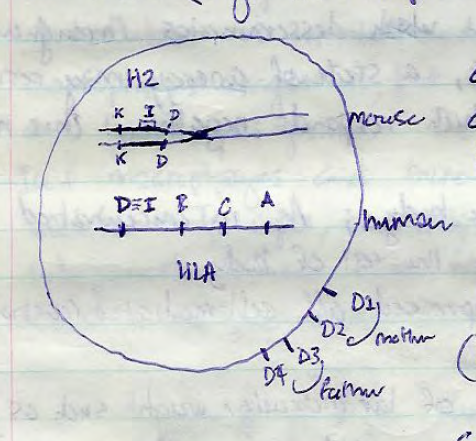 H2
K I D
mouse
K D
D≡I B C A
human
HLA
D1
D2 mother
D3
D4 father